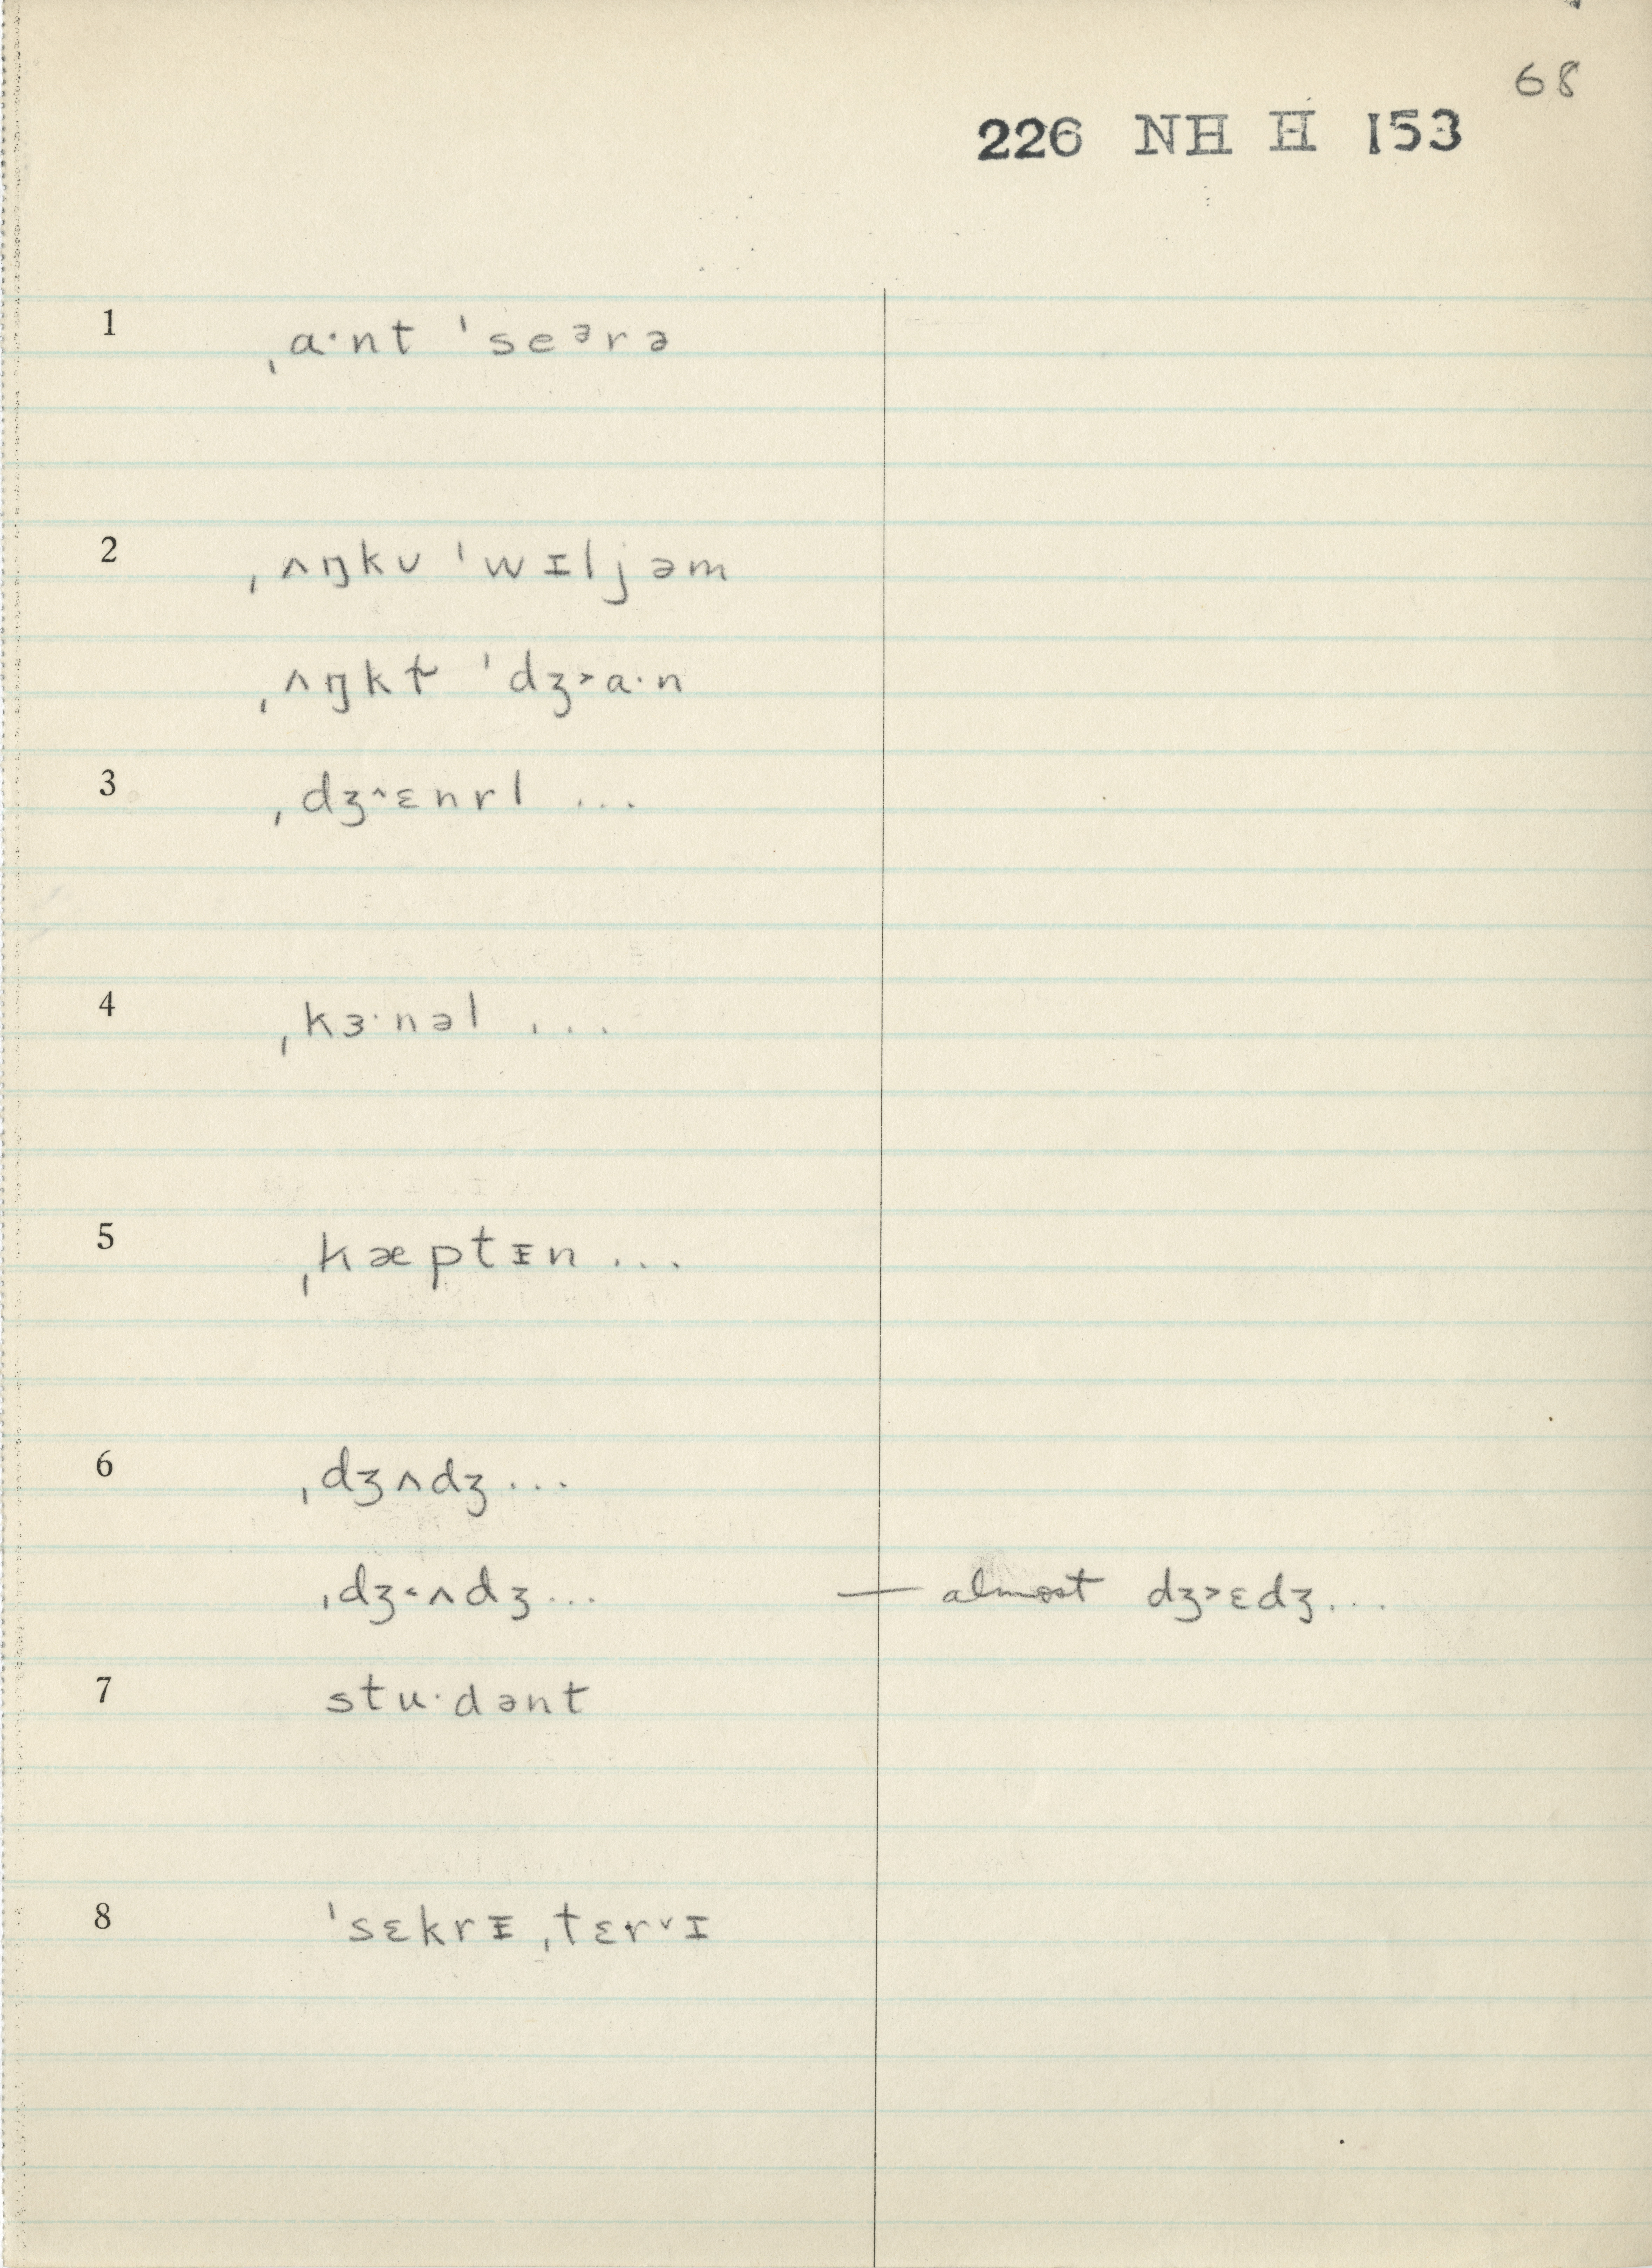 68
226 NH H 153
1 ˌa·nt ˈseᵊrə
2 ˌʌŋkʋ ˈwɪljəm
ˌʌŋkɫ ˈdʒ˃a·n
3 ˌdʒ^ɛnrl ...
4 ˌkɜ·nəl ...
5 ˌkæptᵻn ...
6 ˌdʒʌdʒ ...
ˌdʒ˂ʌdʒ ... — almost dʒ˃ɛdʒ ...
7 stu·dənt
8 ˈsɛkrᵻˌtɛr˅ɪ